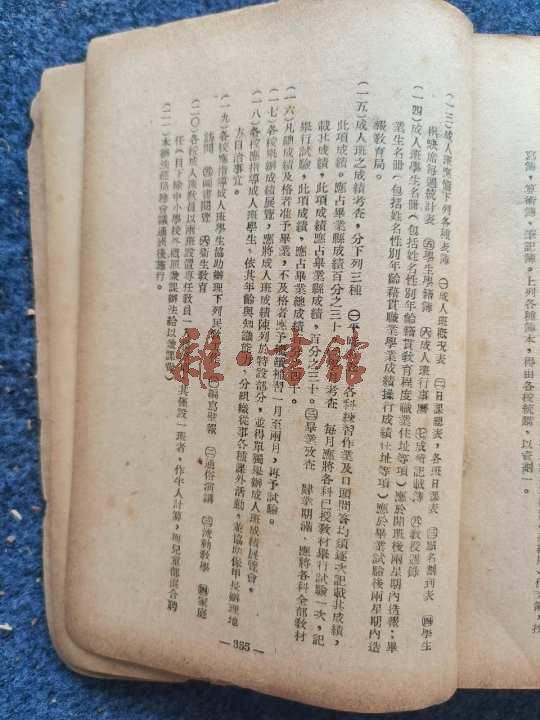 寫簿，算術簿，筆記簿。上列各種簿本，得由各校統購，以壹劃一。
(一三)成人班應備下列各項表簿 ㊀成人班概況表 ㊁日課總表，各班日課表 ㊂點名劃到表 ㊃學生
曠缺席每週統計表 ㊄學生學籍簿 ㊅成人班行事曆 ㊆成績記載簿 ㊇教授週錄
(一四)成人班學生名冊(包括姓名性別年齡籍貫教育程度職業住址等項)應於開班後兩星期內造報；畢
業生名冊(包括姓名性別年齡籍貫職業學業成績操行成績住址等項)應於畢業試驗後兩星期內造
報教育局。
(一五)成人班之成績考查，分下列三種 ㊀平時 各科練習作業及口頭問答均須逐次記載其成績，
此項成績。應占畢業縣成績百分之三十 考查 每月應將各科已授教材舉行試驗一次，記
載其成績，此項成績應占畢業總成績，百分之三十。㊂畢業考查 歸業期滿，應將各科全部教材
舉行試驗，此項成績，應占畢業總成績 百分之四十。
(一六)凡總成績及格者准予畢業，不及格者應予 補習一月至兩月，再予試驗。
(一七)各校舉辦成績展覽，應將成人班成績陳列於特設部分，並得單獨舉辦成人班成績展覽會。
(一八)各校應指導成人班學生，依其年齡與知識能力，分組織從事各種課外活動，並協助保甲長辦理地
方自治事宜。
(一九)各校應指導成人班學生協助辦理下列民 編寫壁報 ㊁通俗演講 ㊂流動教學 ㊃家庭
訪問 ㊄圖書閱覽 ㊅衛生教育
(二〇)各校成人班教員以兩班設置專任教員一 其僅設一班者，作半人計算，與兒童部混合聘
任(目下除中小學校外遵照兼課辦法給以兼課
(二一)本辦法經局務會議通過後施行。
—355—
雜·書館